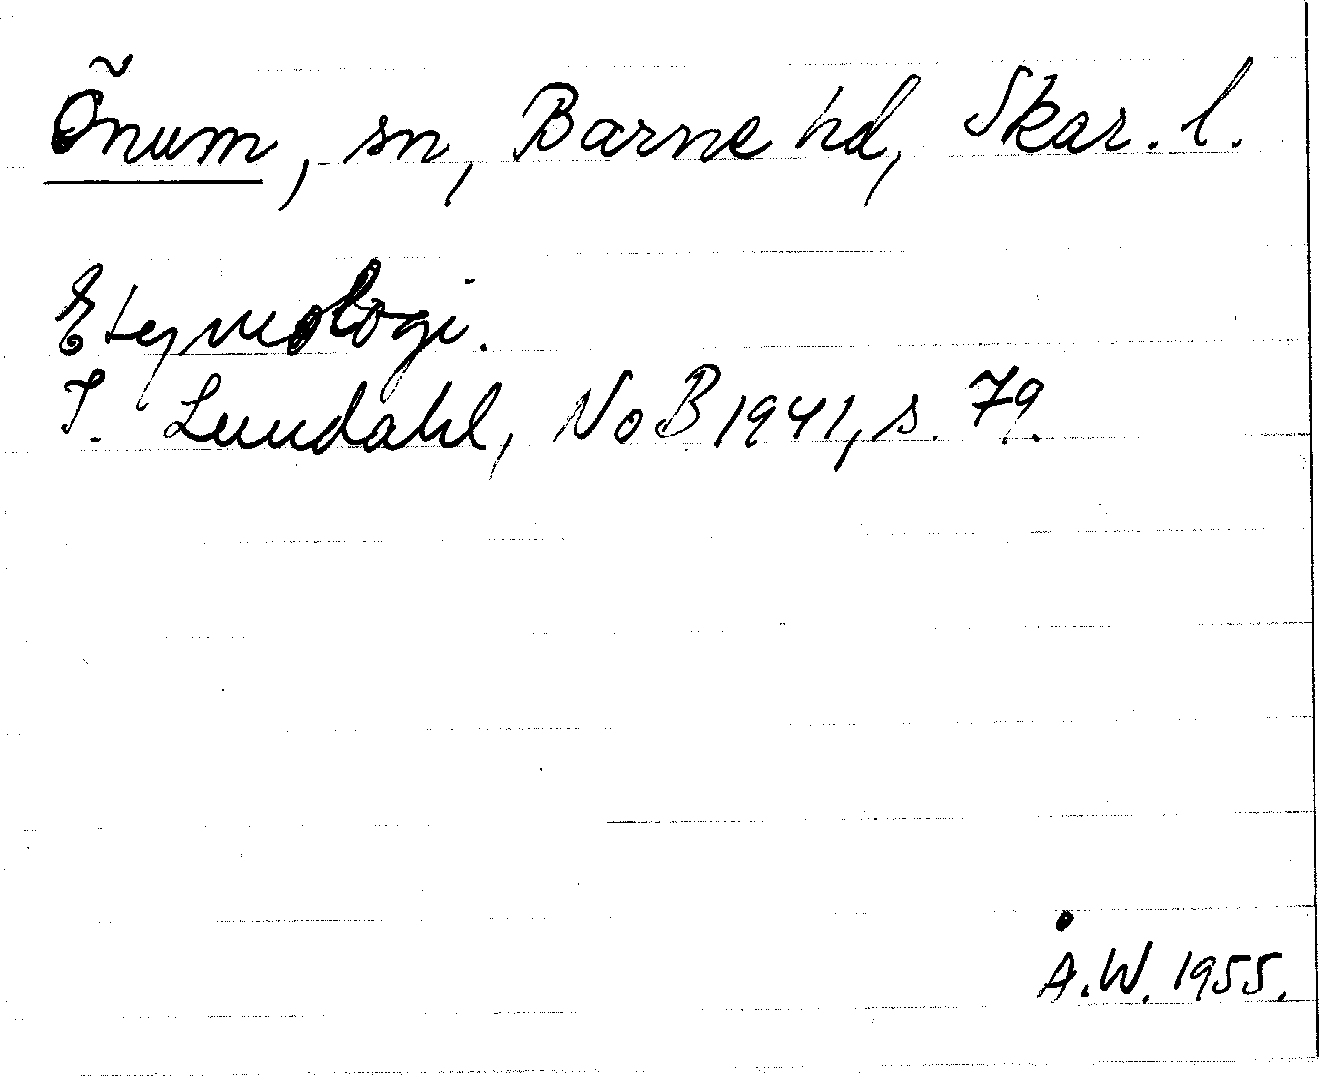 Õnum, sn, Barne hd, Skar. l.
Etymologi.
I. Lundahl, NoB 1941, s. 79.
Å.W. 1955.